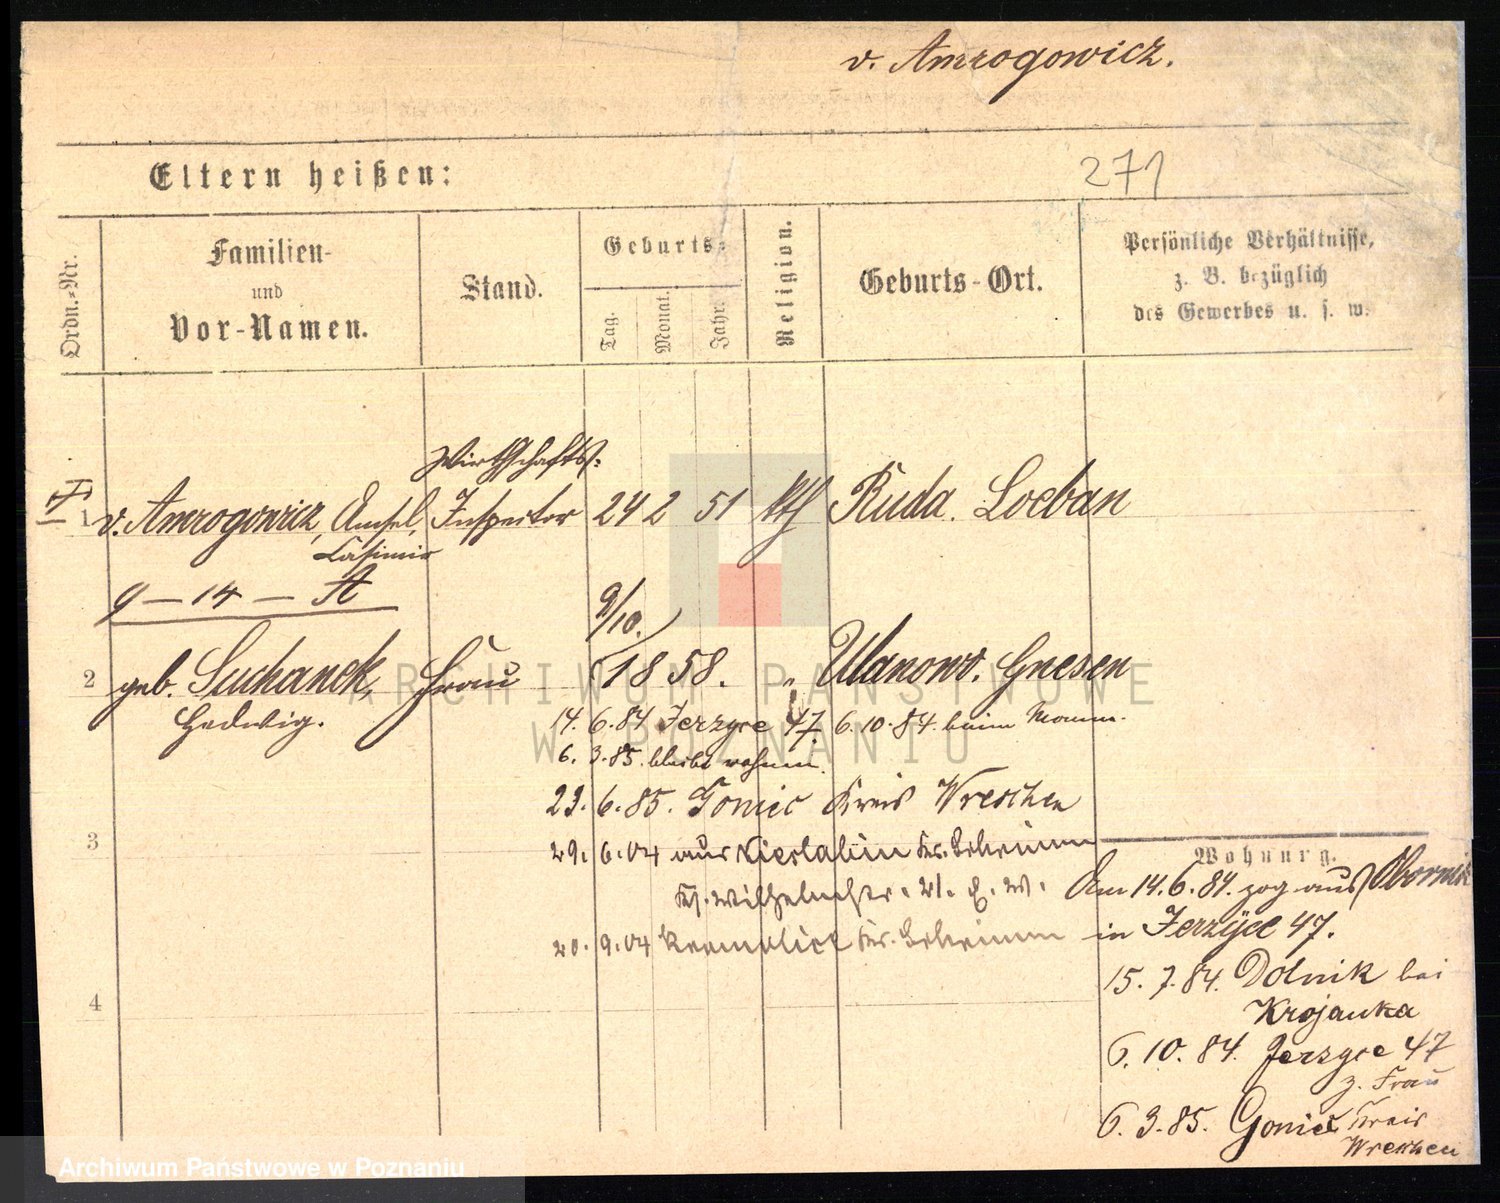 v. Amrogowicz.
Eltern heißen:
271
Ordn.-Nr.
Familien-
und
Vor-Namen.
Stand.
Geburts-
Tag.
Monat.
Jahr.
Religion.
Geburts-Ort.
Persönliche Verhältnisse,
z. B. bezüglich
des Gewerbes u. s. w.
Wirthschafts-
1 v. Amrogowicz, Inspector 24 2 51 kth Ruda. Loebau
Casimir
9 – 14 – A
9/10.
2 geb. Suchanek, Frau 58. " Ulanowo. Gnesen
Hedwig.
14. 6.84 Jerzyce 47. 6.10.84. beim Mann.
6. 3.85. bleibt wohnen.
23. 6.85. Gonic Kreis Wreschen
3
29. 6.04 aus
20. 9.04
4
Wohnung.
Am 14.6.84. zog aus Obornik
in Jerzyce 47.
15. 7.84. Dolnik bei
Krojanka
6. 10. 84. Jerzyce 47
z. Frau
6. 3.85. Gonic Kreis
Wreschen
ARCHIWUM PAŃSTWOWE
W POZNANIU
Archiwum Państwowe w Poznaniu